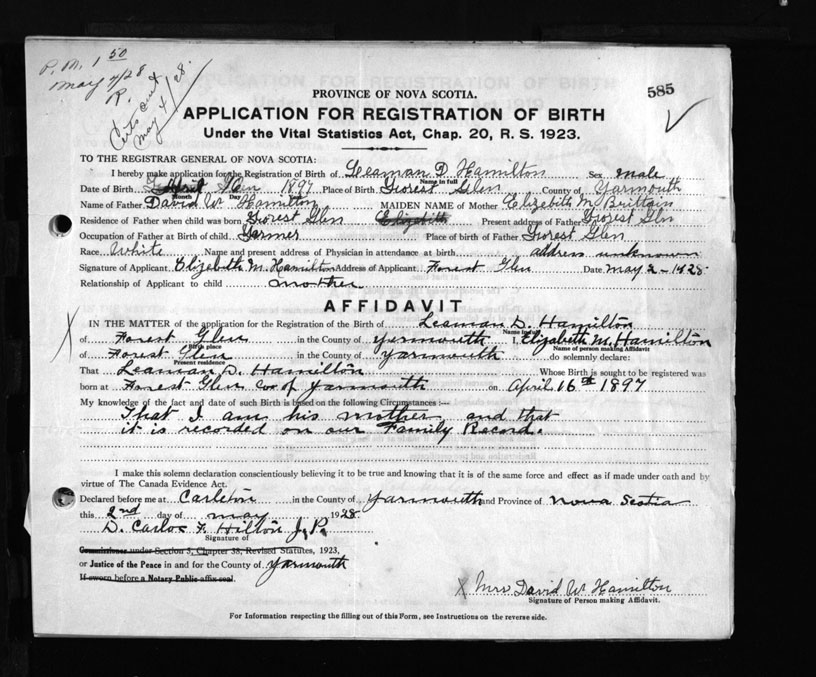 P. M. 1 50
May 4/28
R.
Certs sent
May 4/28.
585
PROVINCE OF NOVA SCOTIA.
APPLICATION FOR REGISTRATION OF BIRTH
Under the Vital Statistics Act, Chap. 20, R. S. 1923.
TO THE REGISTRAR GENERAL OF NOVA SCOTIA:
I hereby make application for the Registration of Birth of Leaman D Hamilton Sex male
Name in full
Date of Birth 1897 Place of Birth Forest Glen County of Yarmouth
Month Day
Name of Father David W. Hamilton MAIDEN NAME of Mother Elizebith M Brittain
Residence of Father when child was born Forest Glen Elizibith Present address of Father Forest Gln
Occupation of Father at Birth of child Farmer Place of birth of Father Forest Glen
Race White Name and present address of Physician in attendance at birth address unknown
Signature of Applicant Elizabeth M. Hamilton Address of Applicant Forest Glen Date May 2 - 1928
Relationship of Applicant to child mother
AFFIDAVIT
IN THE MATTER of the application for the Registration of the Birth of Leaman D. Hamilton
Name in full
of Forest Glen in the County of Yarmouth I, Elizabeth M. Hamilton
Birth place Name of person making Affidavit
of Forest Glen in the County of Yarmouth do solemnly declare:
Present residence
That Leaman D. Hamilton Whose Birth is sought to be registered was
born at Forest Glen Co of Yarmouth on April 16th 1897
My knowledge of the fact and date of such Birth is based on the following Circumstances :—
That I am his mother and that
it is recorded on our Family Record.
I make this solemn declaration conscientiously believing it to be true and knowing that it is of the same force and effect as if made under oath and by
virtue of The Canada Evidence Act.
Declared before me at Carleton in the County of Yarmouth and Province of Nova Scotia
this 2nd day of May 1928
D. Carlos F. Hilton J. P.
Signature of
Commissioner under Section 3, Chapter 38, Revised Statutes, 1923,
or Justice of the Peace in and for the County of Yarmouth
If sworn before a Notary Public affix seal.
X Mrs David W Hamilton
Signature of Person making Affidavit.
For Information respecting the filling out of this Form, see Instructions on the reverse side.